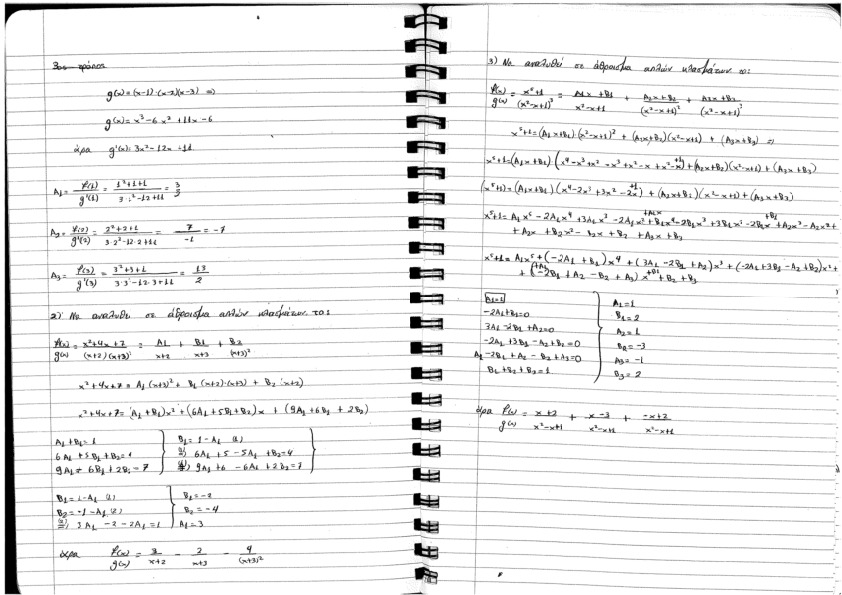 3ος τρόπος
g(x)=(x-1)·(x-2)(x-3) ⇒
g(x)=x³-6x²+11x-6
άρα g'(x)=3x²-12x+11
A₁= f(1)/g'(1) = 1²+1+1/3·1²-12+11 = 3/2
A₂= f(2)/g'(2) = 2²+2+1/3·2²-12·2+11 = 7/-1 = -7
A₃= f(3)/g'(3) = 3²+3+1/3·3²-12·3+11 = 13/2
2) Να αναλυθεί σε άθροισμα απλών κλασμάτων το:
f(x)/g(x) = x²+4x+7/(x+2)(x+3)² = A₁/x+2 + B₁/x+3 + B₂/(x+3)²
x²+4x+7= A₁(x+3)²+ B₁(x+2)·(x+3) + B₂(x+2)
x²+4x+7= (A₁+B₁)x²+(6A₁+5B₁+B₂)x + (9A₁+6B₁+2B₂)
A₁+B₁=1 B₁=1-A₁ (1)
6A₁+5B₁+B₂=4 6A₁+5-5A₁+B₂=4
9A₁+6B₁+2B₂=7 9A₁+6-6A₁+2B₂=7
B₁=1-A₁ (1) B₁=-2
B₂=-1-A₁ (2) B₂=-4
3A₁-2-2A₁=1 A₁=3
άρα f(x)/g(x) = 3/x+2 - 2/x+3 - 4/(x+3)²
3) Να αναλυθεί σε άθροισμα απλών κλασμάτων το:
f(x)/g(x) = x⁵+1/(x²-x+1)³ = A₁x+B₁/x²-x+1 + A₂x+B₂/(x²-x+1)² + A₃x+B₃/(x²-x+1)³
x⁵+1=(A₁x+B₁)·(x²-x+1)²+(A₂x+B₂)(x²-x+1) + (A₃x+B₃) ⇒
x⁵+1=(A₁x+B₁)·(x⁴-x³+x²-x³+x²-x+x²-x+1)+(A₂x+B₂)(x²-x+1)+(A₃x+B₃)
(x⁵+1)=(A₁x+B₁)(x⁴-2x³+3x²-2x+1)+(A₂x+B₂)(x²-x+1)+(A₃x+B₃)
x⁵+1=A₁x⁵-2A₁x⁴+3A₁x³-2A₁x²+A₁x+B₁x⁴-2B₁x³+3B₁x²-2B₁x+B₁+A₂x³-A₂x²+
+A₂x+B₂x²-B₂x+B₂+A₃x+B₃
x⁵+1=A₁x⁵+(-2A₁+B₁)x⁴+(3A₁-2B₁+A₂)x³+(-2A₁+3B₁-A₂+B₂)x²+
+(+A₁-2B₁+A₂-B₂+A₃)x+B₁+B₂+B₃
A₁=1 A₁=1
-2A₁+B₁=0 B₁=2
3A₁-2B₁+A₂=0 A₂=1
-2A₁+3B₁-A₂+B₂=0 B₂=-3
A₁-2B₁+A₂-B₂+A₃=0 A₃=-1
B₁+B₂+B₃=1 B₃=2
άρα f(x)/g(x) = x+2/x²-x+1 + x-3/x²-x+1 + -x+2/x²-x+1